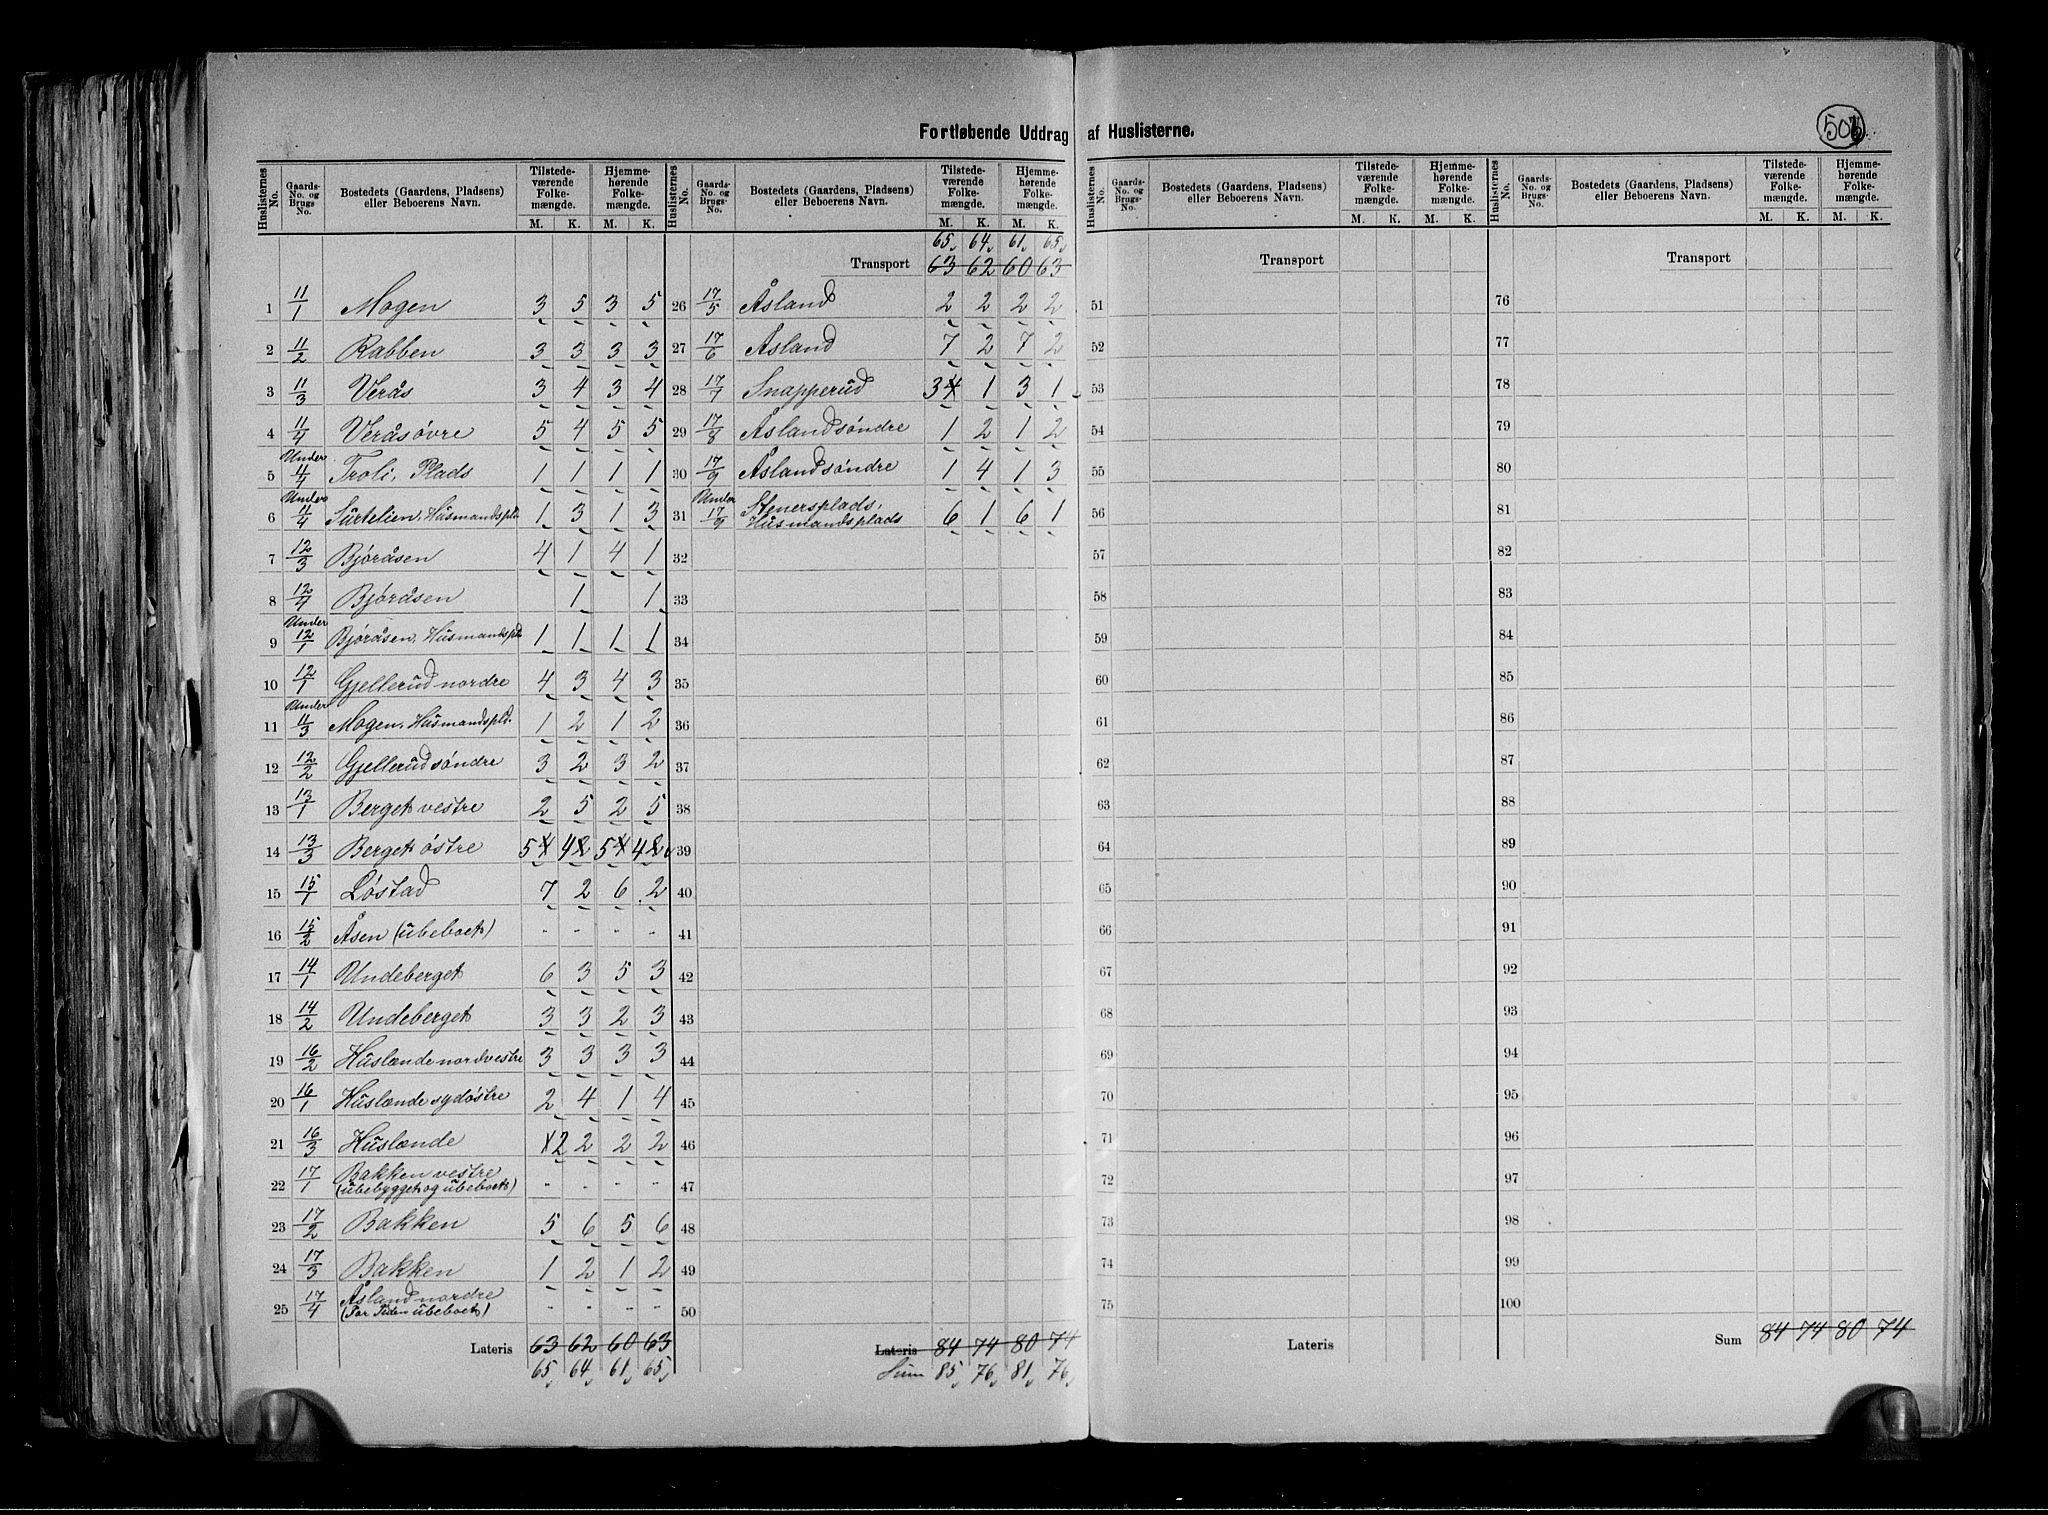 Fortløbende Uddrag af Huslisterne.
Huslisternes No. Gaards-No. og Brugs No. Bostedets (Gaardens, Pladsens) eller Beboerens Navn. Tilstedeværende Folkemængde. M. K. Hjemmehørende Folkemængde. M. K.
1 11/1 Mogen 3 5 3 5
2 11/2 Rabben 3 3 3 3
3 11/3 Verås 3 4 3 4
4 11/4 Verås øvre 5 4 5 5
5 Under 11/4 Troli, Plads 1 1 1 1
6 Under 11/4 Surtelien, Husmandspl. 1 3 1 3
7 12/3 Bjøråsen 4 1 4 1
8 12/4 Bjøråsen 1 1
9 Under 12/1 Bjøråsen, Husmandspl. 1 1 1 1
10 12/1 Gjellerud nordre 4 3 4 3
11 Under 11/3 Mogen, Husmandspld. 1 2 1 2
12 12/2 Gjellerud söndre 3 2 3 2
13 13/1 Berget vestre 2 5 2 5
14 13/3 Berget östre 5 4 5 4
15 15/1 Löstad 7 2 6 2
16 15/2 Åsen (ubeboet) " " " "
17 14/1 Undeberget 6 3 5 3
18 14/2 Undeberget 3 3 2 3
19 16/2 Huslænde nordvestre 3 3 3 3
20 16/1 Huslænde sydöstre 2 4 1 4
21 16/3 Huslænde 2 2 2 2
22 17/1 Bakken vestre
(ubebygget og ubeboet) " " " "
23 17/2 Bakken 5 6 5 6
24 17/3 Bakken 1 2 1 2
25 17/4 Åsland nordre
(For Tiden ubeboet) " " " "
Lateris 63 62 60 63
65 64 61 65
Huslisternes No. Gaards-No. og Brugs-No. Bostedets (Gaardens, Pladsens) eller Beboerens Navn. Tilstedeværende Folkemængde. M. K. Hjemmehørende Folkemængde. M. K.
65 64 61 65
Transport 63 62 60 63
26 17/5 Åsland 2 2 2 2
27 17/6 Åsland 7 2 7 2
28 17/7 Snapperud 3 4 1 3 1
29 17/8 Åsland söndre 1 2 1 2
30 17/9 Åsland söndre 1 4 1 3
31 Under 17/9 Stenersplads,
Husmandsplads 6 1 6 1
32
33
34
35
36
37
38
39
40
41
42
43
44
45
46
47
48
49
50
Lateris 84 74 80 74
Sum 85 76 81 76
Huslisternes No. Gaards-No. og Brugs-No. Bostedets (Gaardens, Pladsens) eller Beboerens Navn. Tilstedeværende Folkemængde. M. K. Hjemmehørende Folkemængde. M. K.
Transport
51
52
53
54
55
56
57
58
59
60
61
62
63
64
65
66
67
68
69
70
71
72
73
74
75
Lateris
Huslisternes No. Gaards-No. og Brugs-No. Bostedets (Gaardens, Pladsens) eller Beboerens Navn. Tilstedeværende Folkemængde. M. K. Hjemmehørende Folkemængde. M. K.
Transport
76
77
78
79
80
81
82
83
84
85
86
87
88
89
90
91
92
93
94
95
96
97
98
99
100
Sum 84 74 80 74